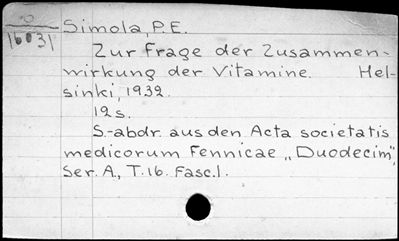 Simola, P.E.
16031
Zur Frage der Zusammen-
wirkung der Vitamine. Hel-
sinki, 1932.
12 s.
S.-abdr. aus den Acta societatis
medicorum Fennicae „Duodecim",
Ser. A., T. 16. Fasc. 1.